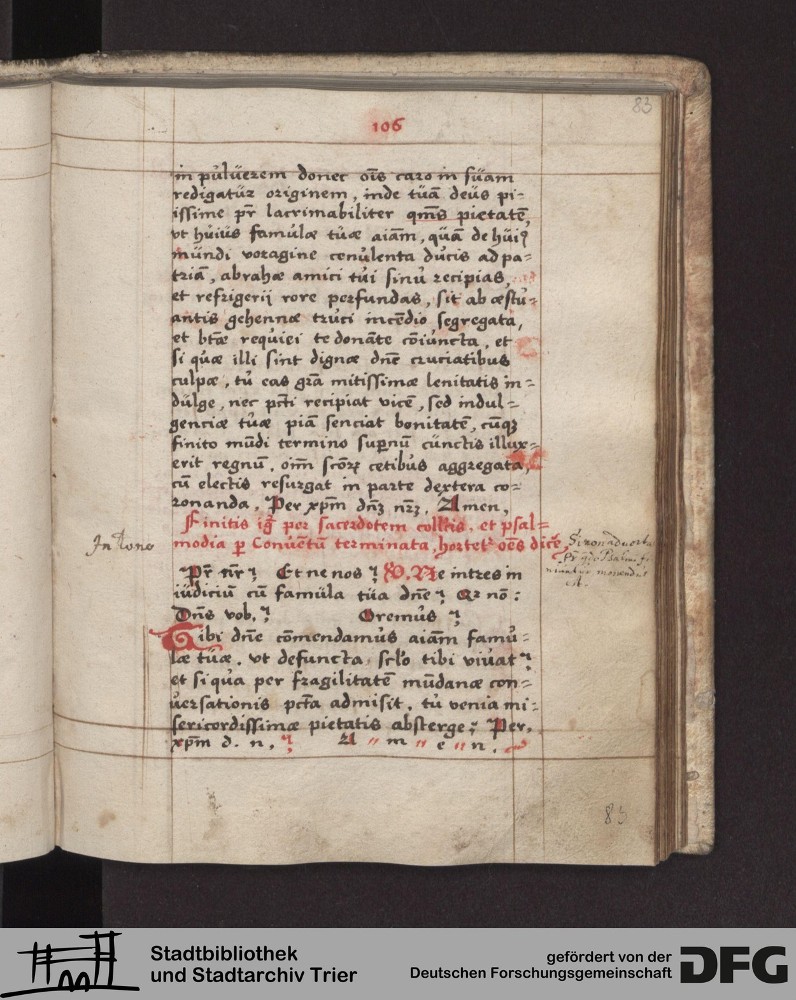 83
106
in púlúerem donec oīs caro in súam
redigatúr originem, inde túā deús pi-
issime pr̄ lacrimabiliter qms̄ pietatē,
vt húiús famúlæ túæ aīam, qúā de húi9
múndi voragine cenúlenta dúcis ad pa-
triā, abrahæ amici túi sinú recipias,
et refrigerij rore perfundas, sit ab æstú-
antis gehennæ trúci incēdio segregata,
et btǣ reqúiei te donāte cōiúncta, et
si qúæ illi sint dignæ dnē cruciatibus
culpæ, tú eas grā mitissimæ lenitatis in-
dúlge, nec pctī recipiat vicē, sed indul-
genciæ túæ piā senciat bonitatē, cúqȝ
finito mūdi termino supnū cúnctis illux-
erit regnū, oīm scōrȝ cetibús aggregata,
cū electis resurgat in parte dextera co-
ronanda, Per xpm̄ dnȝ nrȝ. Amen,
Finitis ig̃ per sacerdotem collt̄is, et psal-
modia p Conúētū terminata, hortetr oēs dicē,
Pr̄ nr̄ ? Et ne nos ? V. Ne intres in
iúdiciú cū famúla túa dnē ? Qr nō :
Dnŝ vob. ? Oremús ?
Tibi dnē cōmendamús aīam famú-
læ túæ, vt defuncta sclō tibi vivat ?
et si qua per fragilitatē mūdanæ con-
úersationis pctā admisit, tú venia mi-
sericordissimæ pietatis absterge ; Per,
xpm̄ d. n. ? A " m " e " n .
In tono
83
Stadtbibliothek
und Stadtarchiv Trier
gefördert von der
Deutschen Forschungsgemeinschaft
DFG